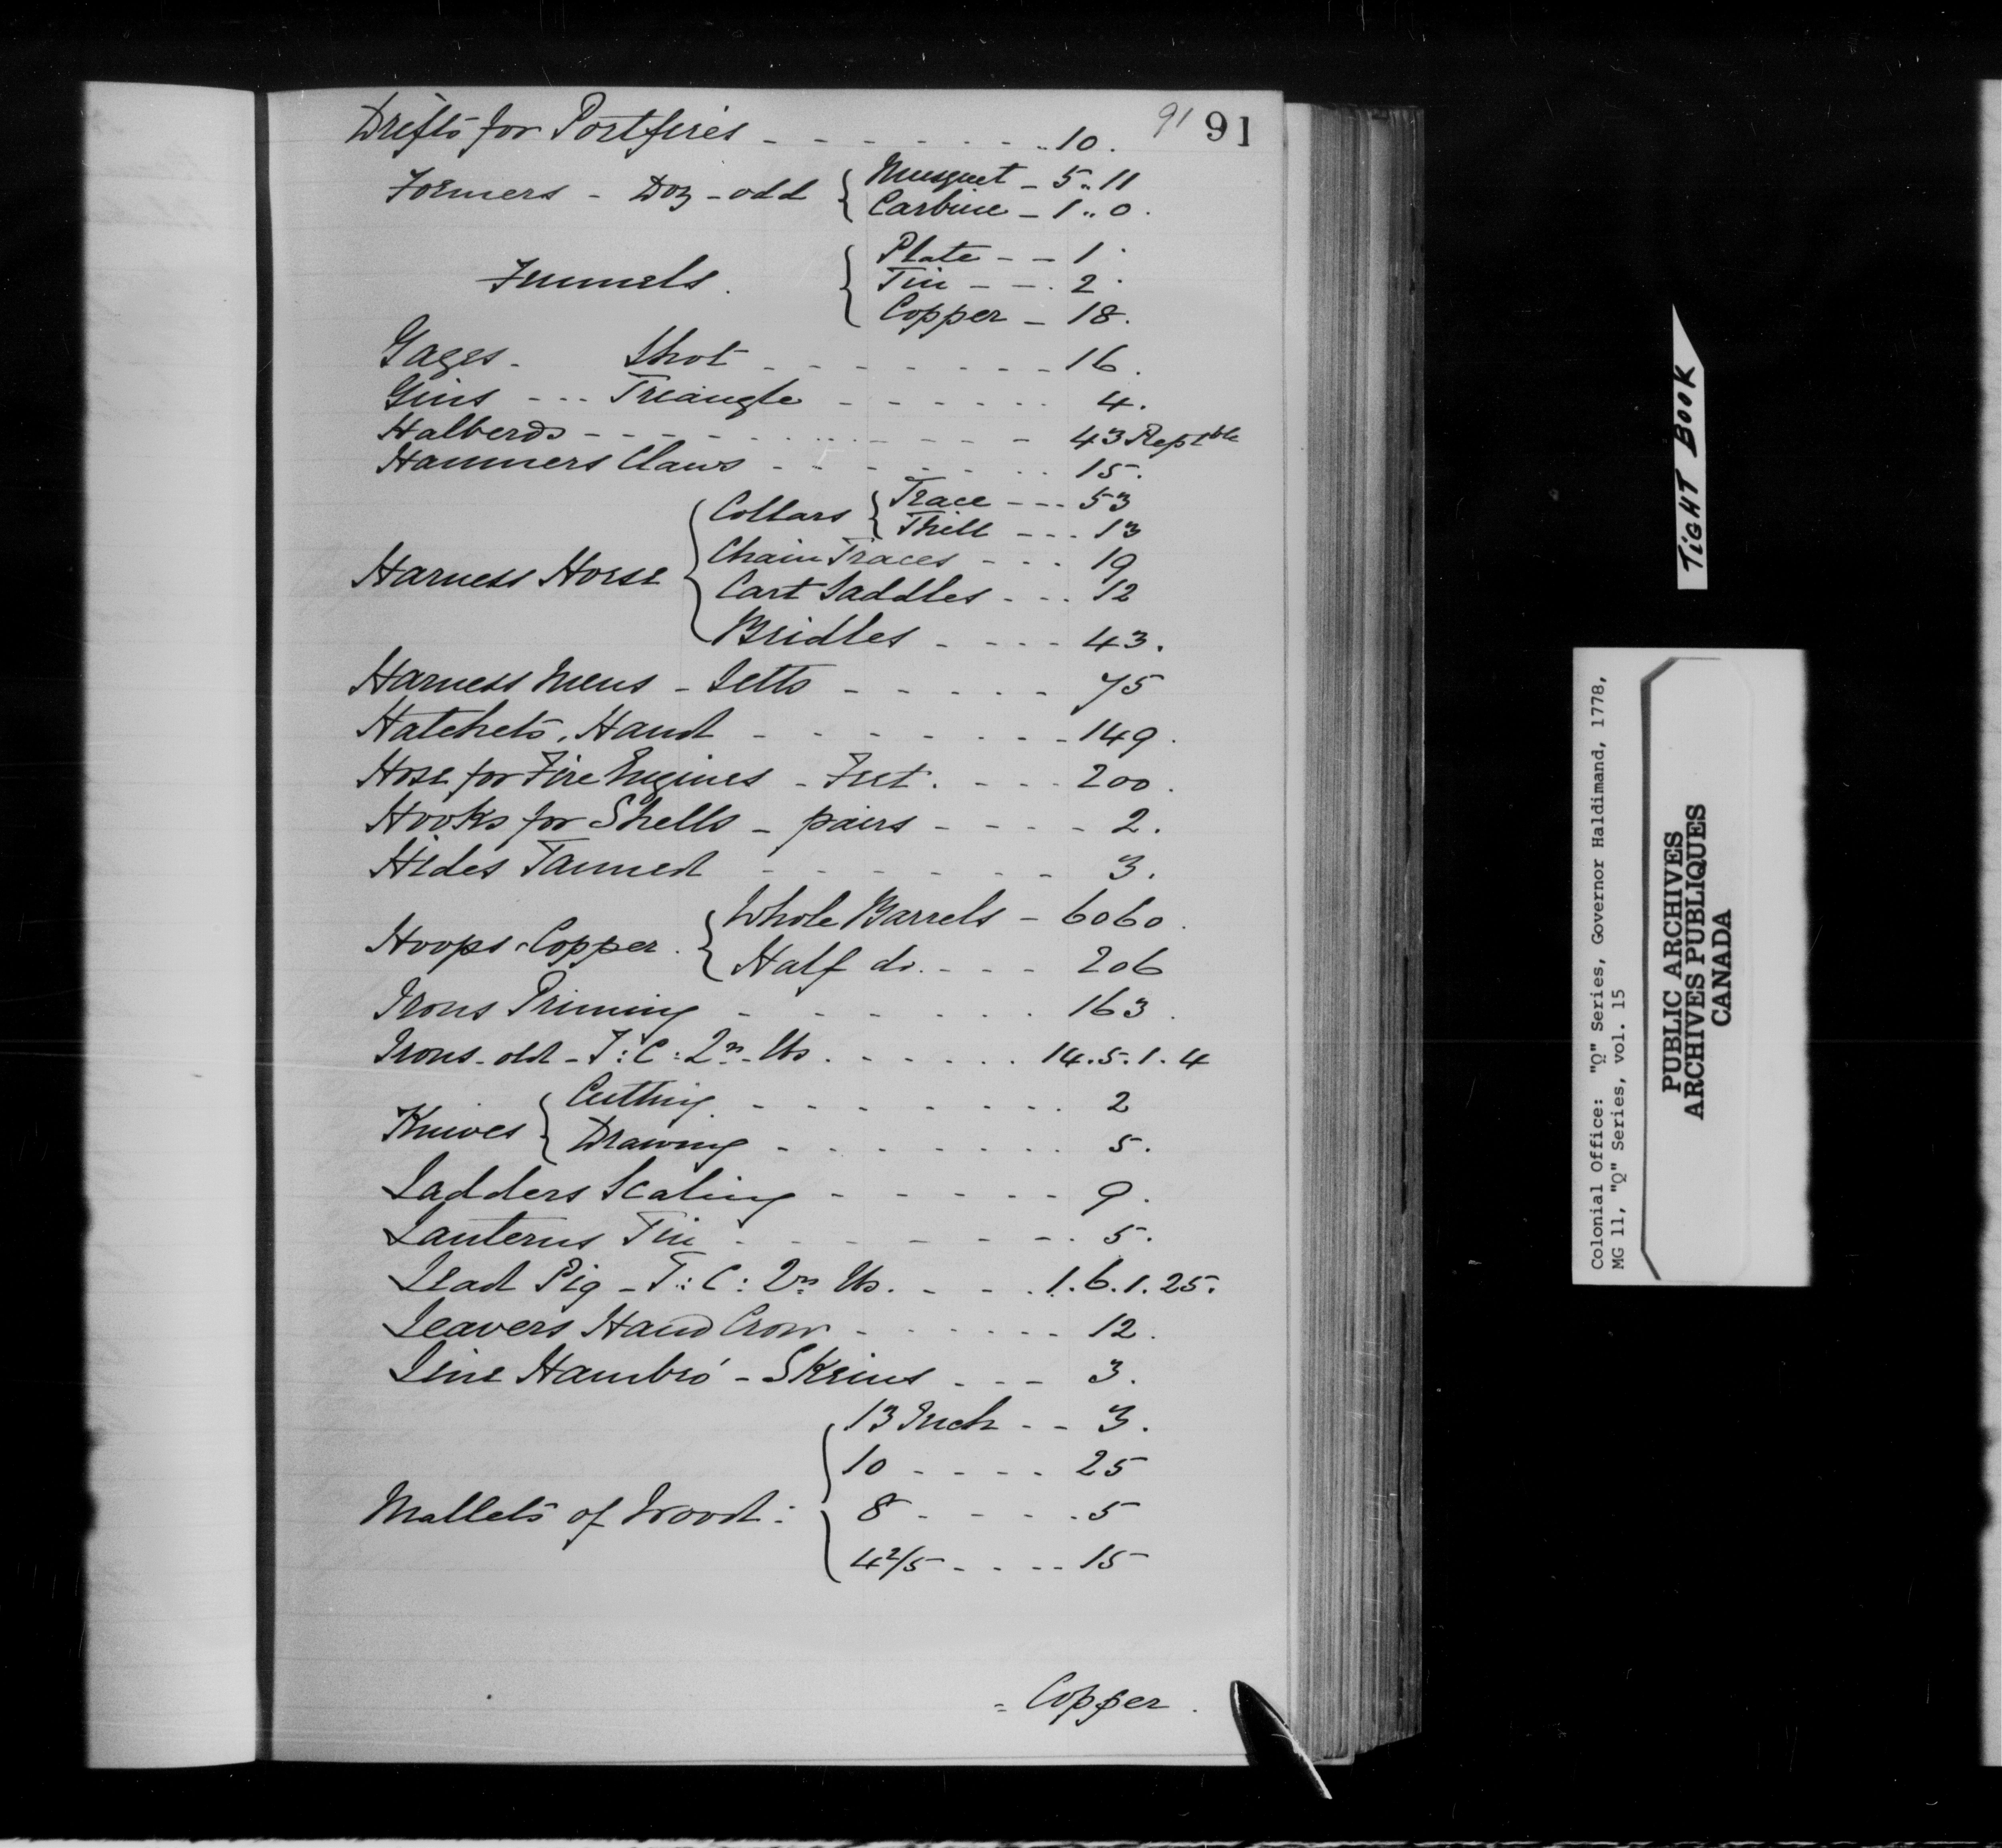 91 91
Drifts for Portfires - - - - - - - 10.
Formers - Doz - odd { Musquet - 5 " 11
Carbine - 1 " 0.
Funnels. { Plate - - 1.
Tin - - . 2.
Copper - 18.
Gages - Shot - - - - - - - - 16.
Gins - - - Triangle - - - - - - - 4.
Halberds - - - - - - - - - - - 43 Rep^ble
Hammers Claws - - - - - - - - 15.
Harness Horse { Collars { Trace - - - 53
Thill - - - 13
Chain Traces - - - 19
Cart Saddles - - - 12
Bridles - - - - 43.
Harness Mens - Setts - - - - - 75
Hatchets, Hand - - - - - - - - 149.
Hose for Fire Engines - Feet. - - - 200.
Hooks for Shells - pairs - - - - 2.
Hides Tanned - - - - - - - 3.
Hoops Copper. { Whole Barrels - 6060.
Half do. - - - 206
Irons Priming - - - - - - . 163.
Irons - old - T: C: Qrs. lbs. - - - - - 14. 5. 1. 4
Knives { Cutting. - - - - - - - - 2
Drawing - - - - - - - - 5.
Ladders Scaling - - - - - - 9.
Lanterns Tin - - - - - - - - 5.
Lead Pig - T: C: Qrs. lbs. - - - 1. 6. 1. 25.
Leavers Hand Crow - - - - - - 12.
Line Hambro' - Skeins - - - 3.
Mallets of Wood: { 13 Inch - - 3.
10 - - - - 25
8 - - - - 5
4 2/5 - - - - 15
= Copper.
TIGHT BOOK
Colonial Office: "Q" Series, Governor Haldimand, 1778,
MG 11, "Q" Series, vol. 15
PUBLIC ARCHIVES
ARCHIVES PUBLIQUES
CANADA